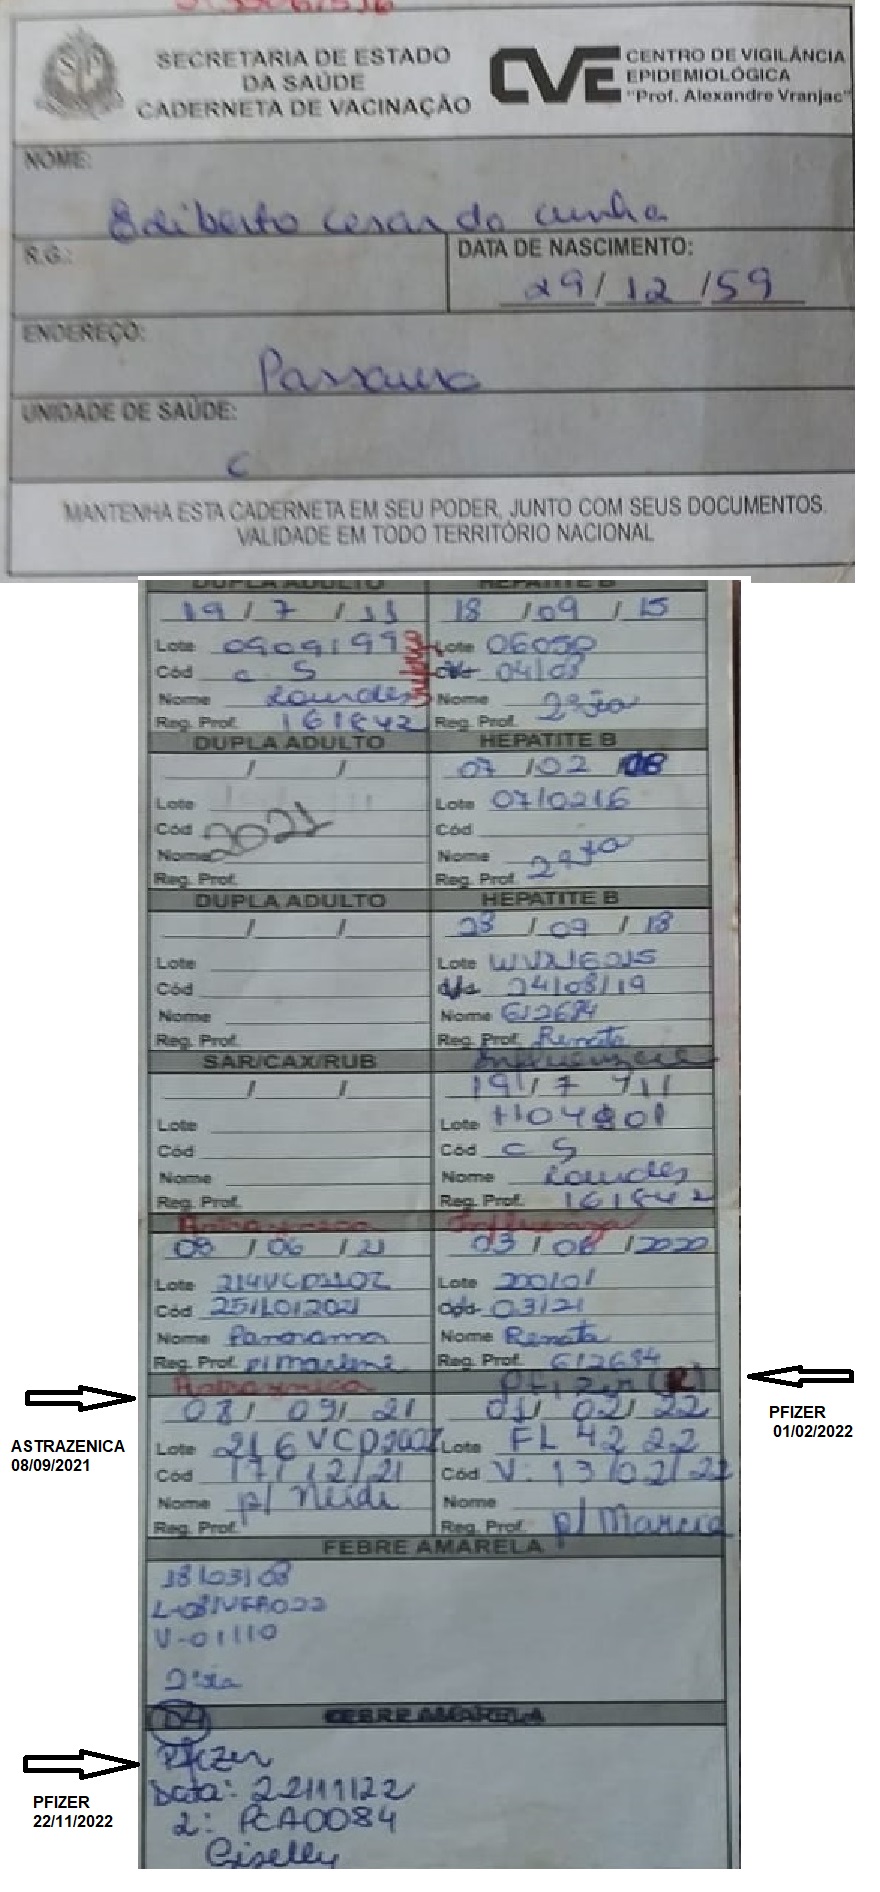 SECRETARIA DE ESTADO
DA SAÚDE
CADERNETA DE VACINAÇÃO
CVE
CENTRO DE VIGILÂNCIA
EPIDEMIOLÓGICA
"Prof. Alexandre Vranjac"
NOME:
Ediberto Cesar da Cunha
R.G.:
DATA DE NASCIMENTO:
29/12/59
ENDEREÇO:
UNIDADE DE SAÚDE:
C
MANTENHA ESTA CADERNETA EM SEU PODER, JUNTO COM SEUS DOCUMENTOS.
VALIDADE EM TODO TERRITÓRIO NACIONAL
DUPLA ADULTO
19/7/11
Lote 0909199
Cód C S
Nome Lourdes
Reg. Prof. 161842
HEPATITE B
18/09/15
Lote 06050
04/08
Nome 2ª via
Reg. Prof.
DUPLA ADULTO
/ /
Lote
Cód 2021
Nome
Reg. Prof.
HEPATITE B
07/02/08
Lote 0710216
Cód
Nome 2ª via
Reg. Prof.
DUPLA ADULTO
/ /
Lote
Cód
Nome
Reg. Prof.
HEPATITE B
28/09/18
Lote
24/08/19
Nome 612684
Reg. Prof. Renata
SAR/CAX/RUB
/ /
Lote
Cód
Nome
Reg. Prof.
Influenza
19/7/11
Lote
Cód C S
Nome Lourdes
Reg. Prof. 161842
Astrazenica
08/06/21
Lote 214VCD210Z
Cód 25/10/2021
Nome Panorama
Reg. Prof. p/ Marleni
Influenza
03/06/2020
Lote 200101
03/21
Nome Renata
Reg. Prof. 612684
Astrazenica
08/09/21
Lote 216VCD202Z
Cód 17/12/21
Nome p/ Neide
Reg. Prof.
Pfizer (R)
01/02/22
Lote FL 4222
Cód V: 13/02/22
Nome
Reg. Prof. p/ Marcia
ASTRAZENICA
08/09/2021
PFIZER
01/02/2022
FEBRE AMARELA
18/03/08
V-01110
2ª via
FEBRE AMARELA
D4
Pfizer
Data: 22/11/22
L: PCA0084
Giselly
PFIZER
22/11/2022